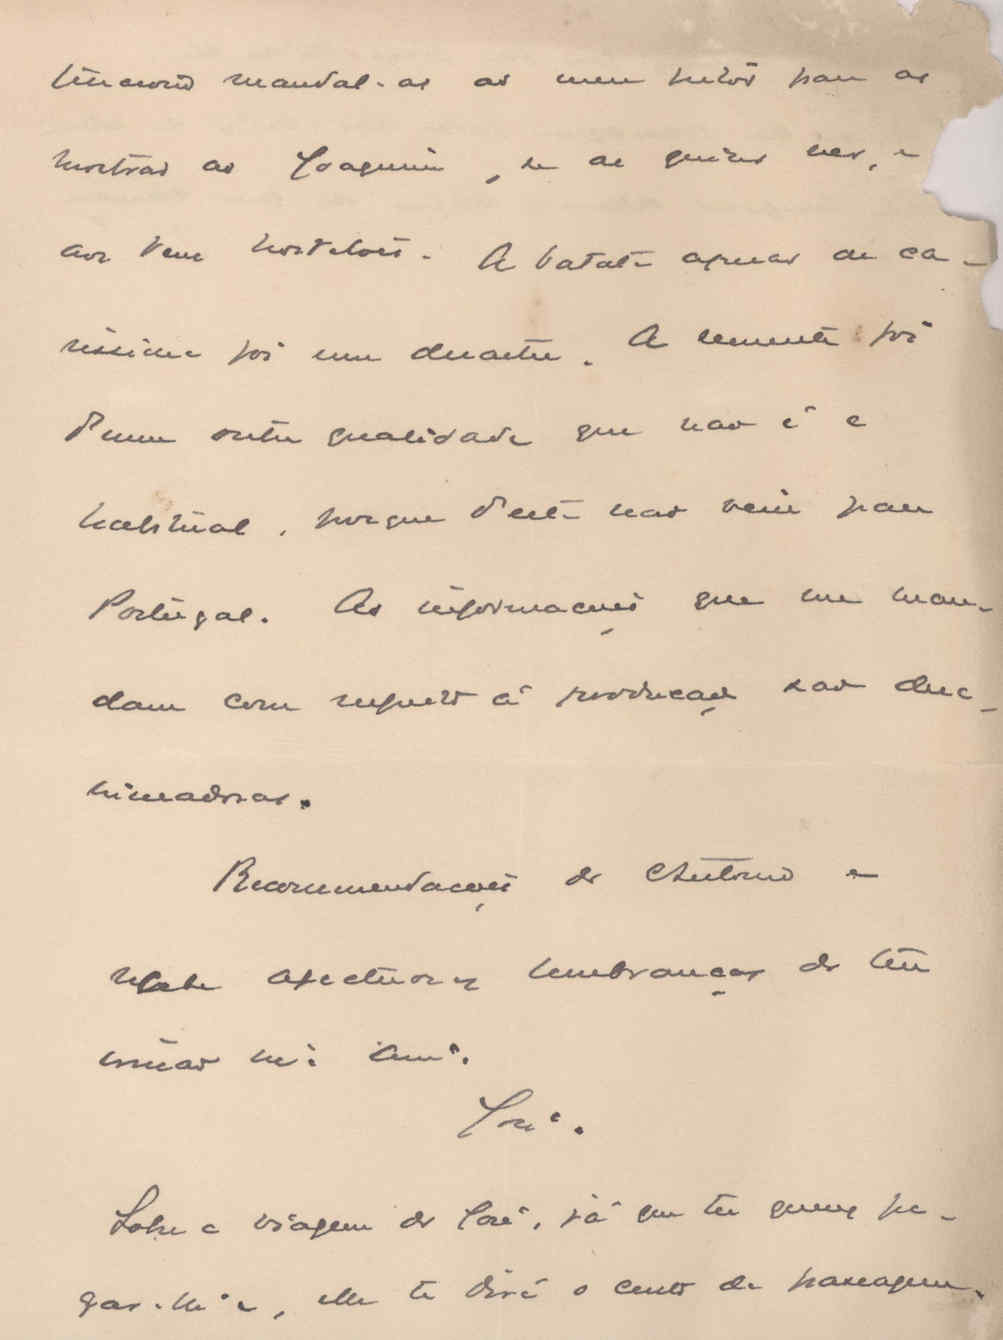 tenciono mandal-as ao meu para as
mostrar ao Joaquim, se as quizer ver, e
aos teus hortelões. A batata apesar de ca-
rissima foi um desastre. A semente foi
d'uma outra qualidade que nao é a
habitual, porque d'esta nao veiu para
Portugal. As informações que me man-
dam com respeito á producção sao desa-
nimadoras.
Recommendações do Antonio e
recebe afectuosas lembranças do teu
irmão m.to am.o.
José.
Sobre a viagem do José, já que tu queres pa-
gar-lh'a, elle te dirá o custo da passagem.